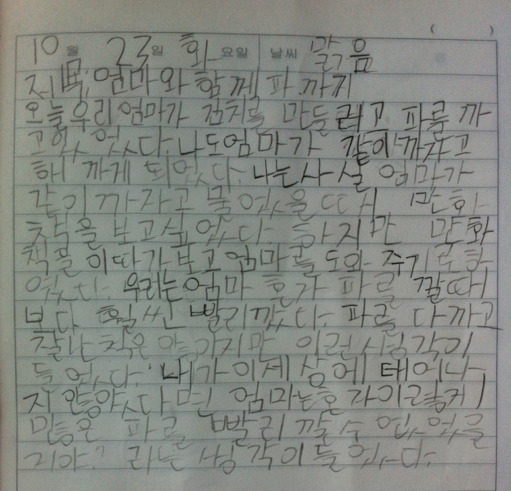 10월 23일 화요일 날씨 맑음
제목: 엄마와 함께 파 까기
오늘 우리 엄마가 김치를 만들려고 파를 까
고 있었다. 나도 엄마가 같이 까자고
해 까게 되었다. 나는 사실 엄마가
같이 까자고 물었을 때 만화
책을 보고 싶었다. 하지만 만화
책을 이따가 보고 엄마를 도와주기로 하
였다. 우리는 엄마 혼자 파를 깔 때
보다 훨씬 빨리 깠다. 파를 다 까고
잘난 척은 안 이런 생각이
들었다. '내가 이 세상에 테어나
지 안았다면 엄마는 혼자 이렇게
많은 파를 빨리 깔 수 없었을
거야.' 라는 생각이 들었다.